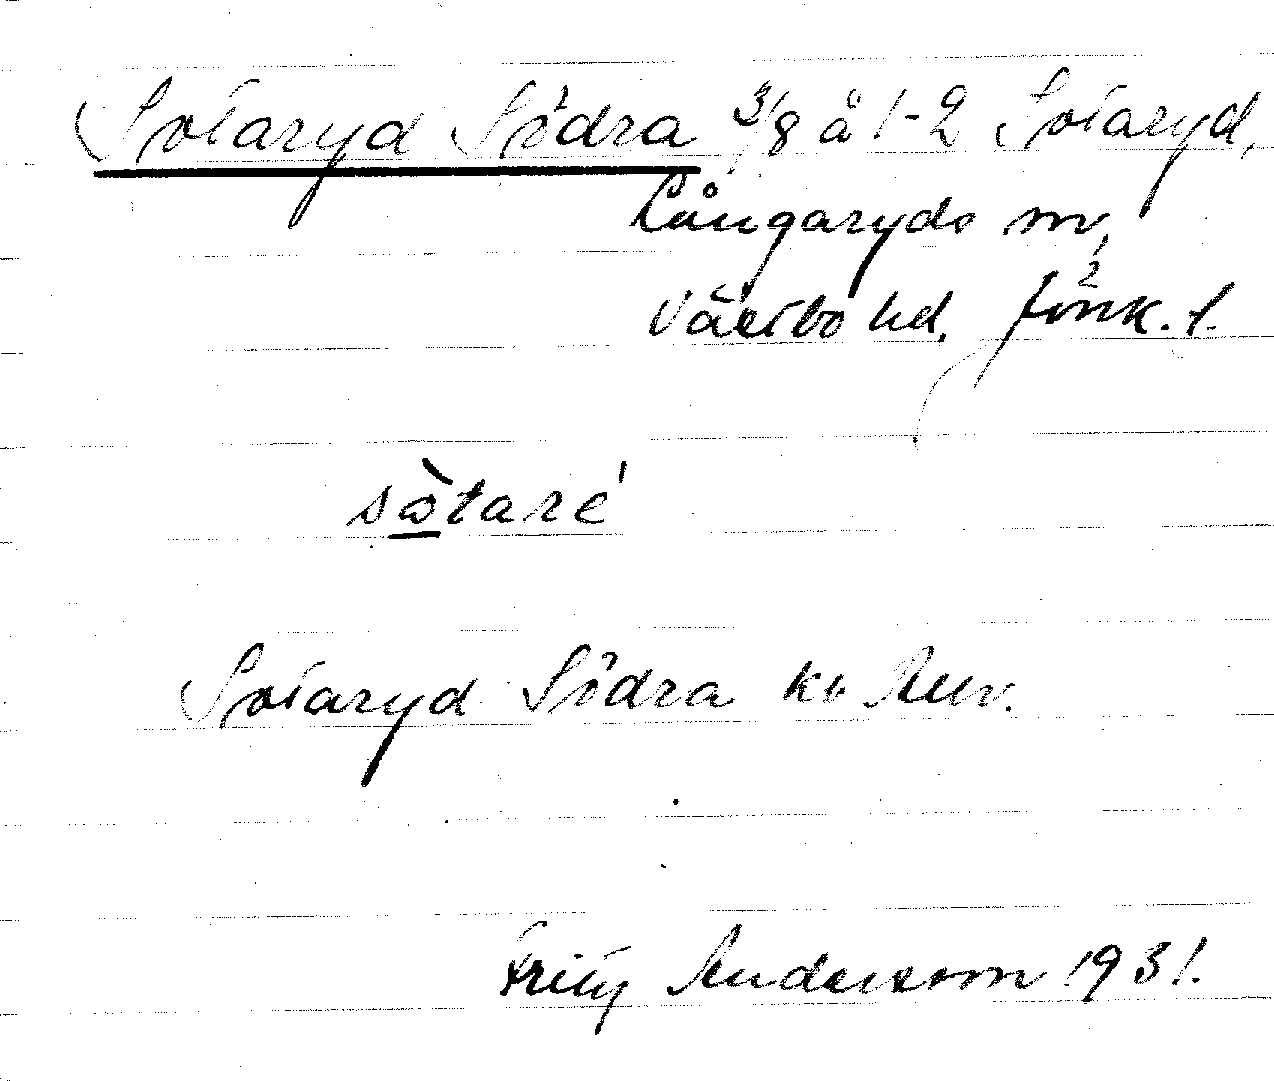 Sotaryd Södra 3/8 å 1-2 Sotaryd,
Långaryds sn,
Västbo hd, Jönk. l.
sòtaré
Sotaryd Södra
Fritz Andersson 1931.